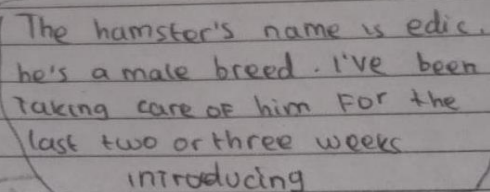 The hamster's name is edic.
he's a male breed. I've been
Taking care of him For the
last two or three weeks
introducing